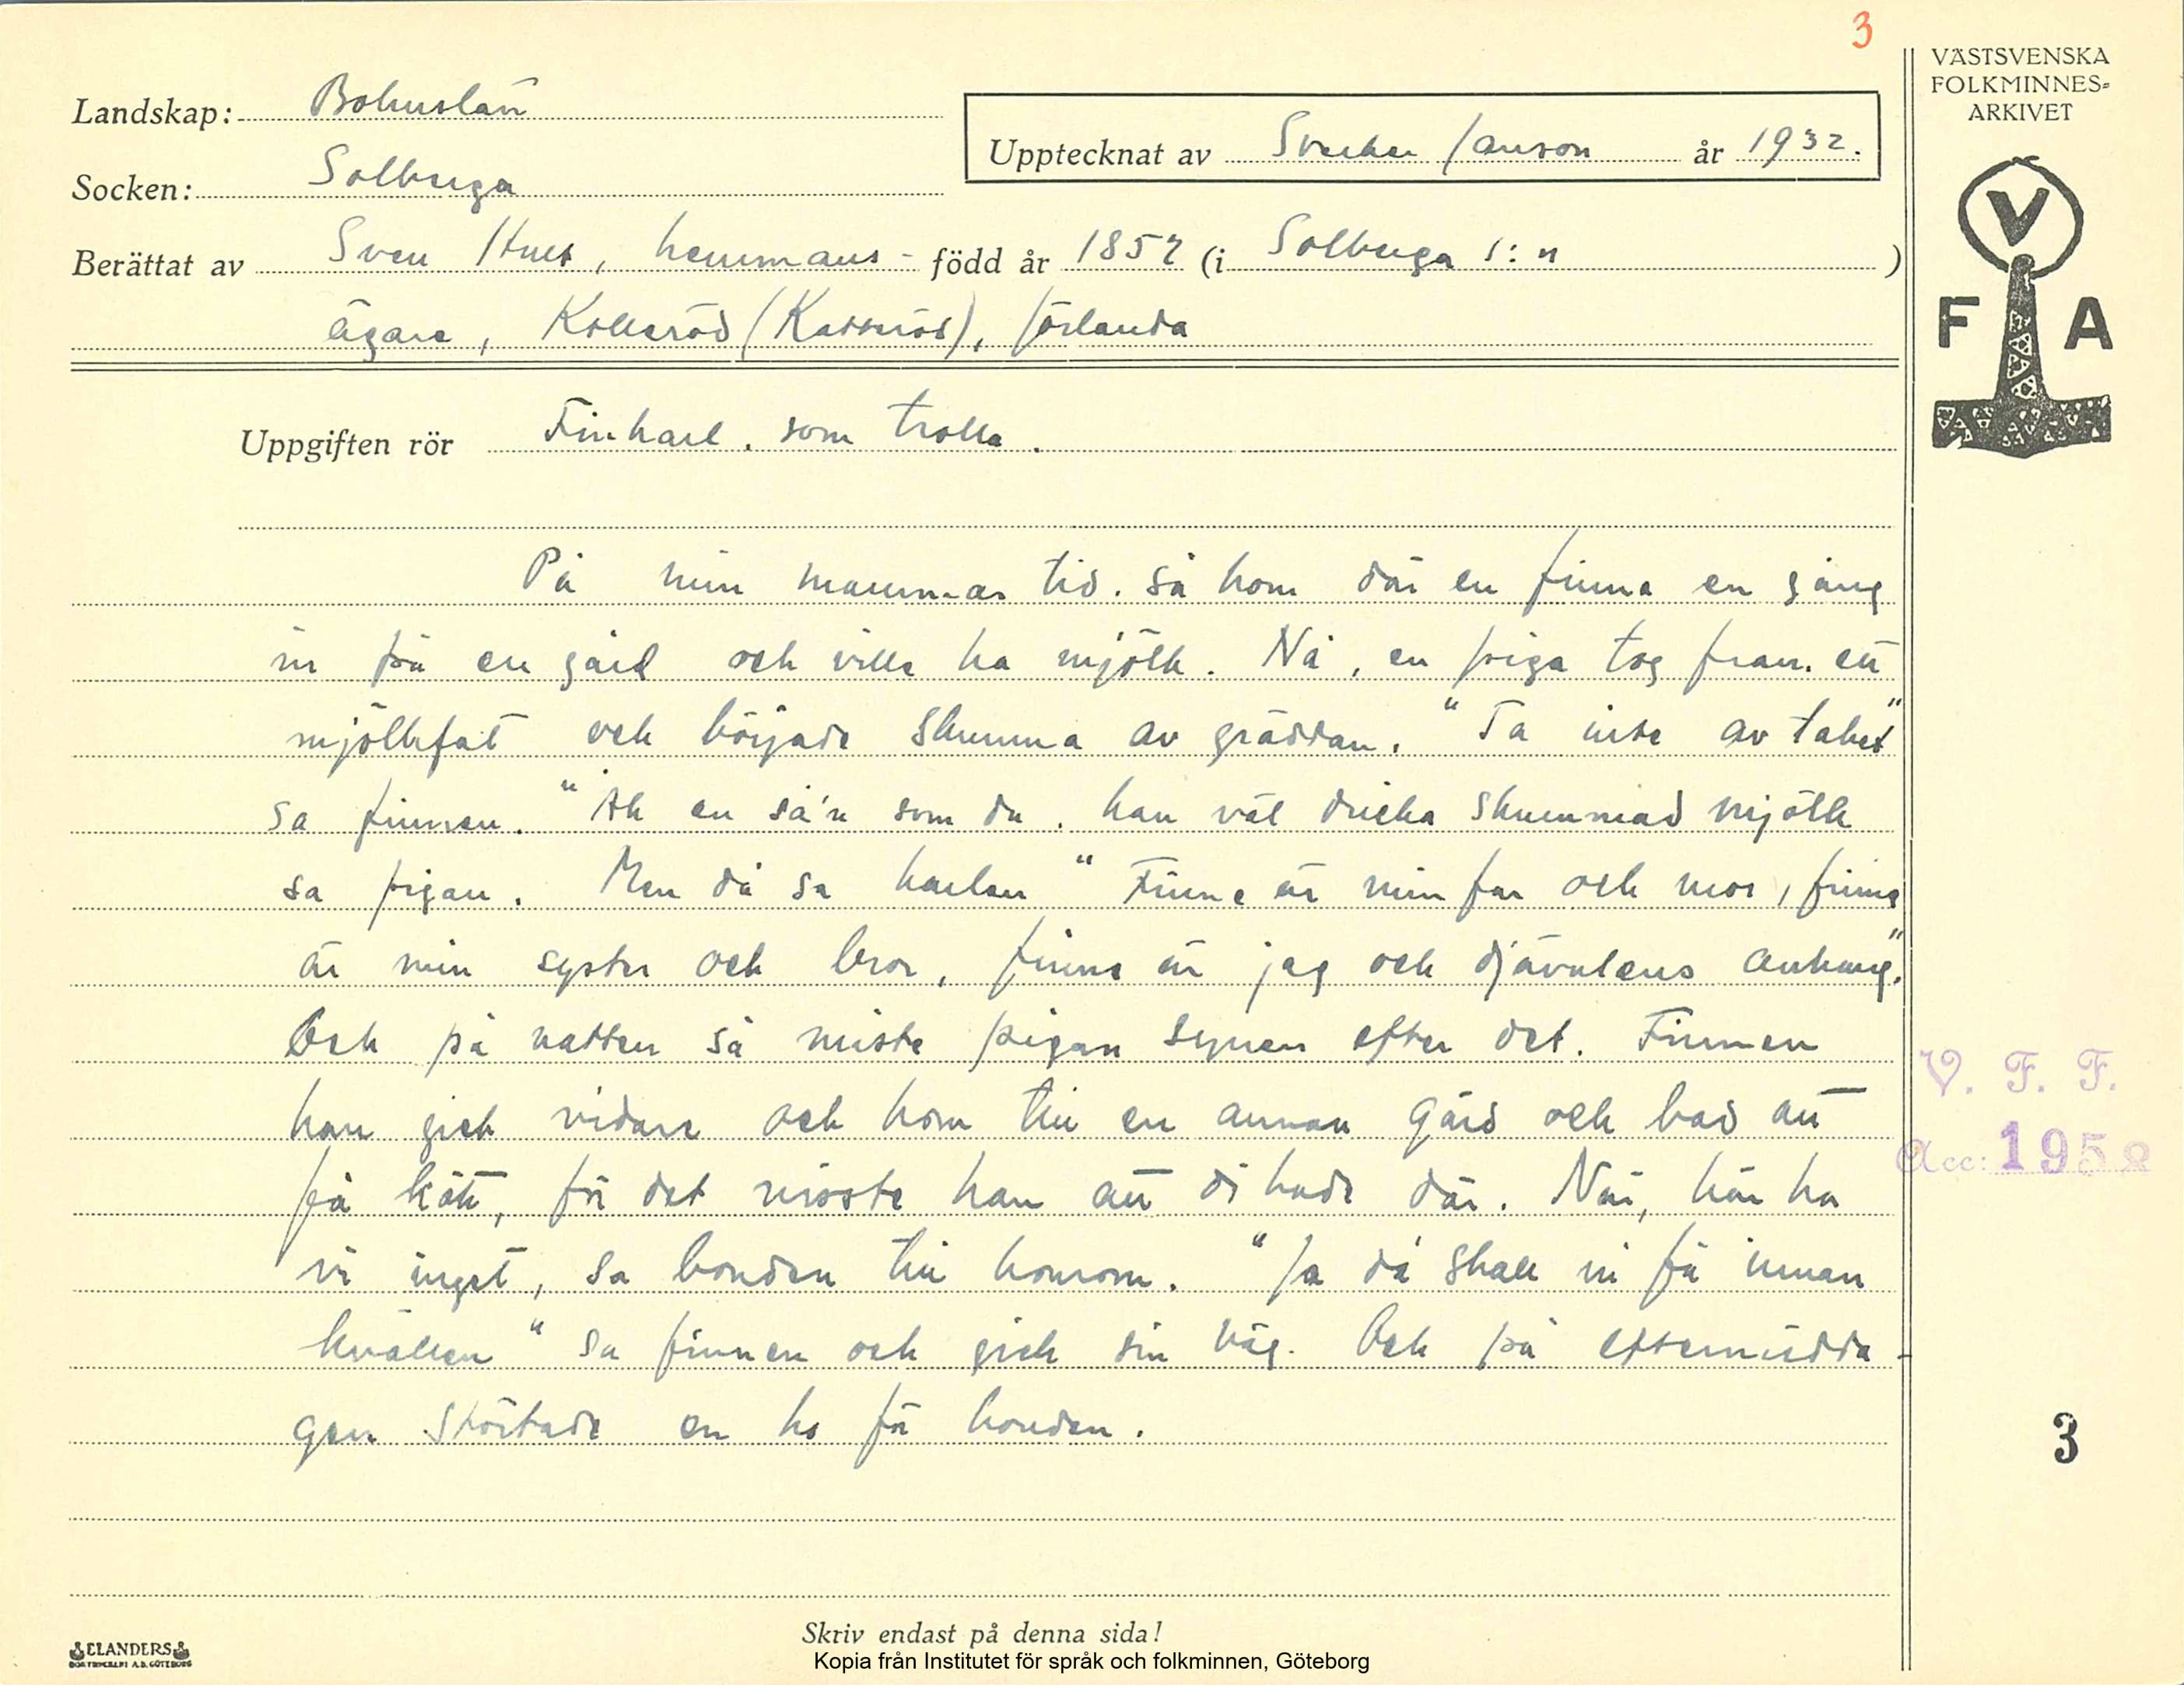 3
VÄSTSVENSKA
FOLKMINNES-
ARKIVET
Landskap: Bohuslän
Upptecknat av Sverker Janson år 1932.
Socken: Solberga
Berättat av Sven Hult, hemmans- född år 1857 (i Solberga s:n )
ägare, Kollaröd (), Jörlanda
V
F A
Uppgiften rör Finkarl, som trolla.
På min mammas tid. så kom där en finne en gång
in på en gård och ville ha mjölk. Nå, en piga tog fram ett
mjölkfat och började skumma av gräddan. "Ta inte av taket"
sa finnen. "Åh en så'n som du, kan väl dricka skummad mjölk
sa pigan. Men då sa karlen "Finne är min far och mor, finne
är min syster och bror, finne är jag och djävulens anhang."
Och på natten så miste pigan synen efter det. Finnen
han gick vidare och kom till en annan gård och bad att
få kött, för det visste han att di hade där. Nåi, här ha
vi inget, sa bonden till honom. "Ja då skall ni få innan
kvällen" sa finnen och gick sin väg. Och på eftermidda-
gen störtade en ko få bonden.
V. F. F.
Acc: 1952
3
ELANDERS
BOKTRYCKERI A.B. GÖTEBORG
Skriv endast på denna sida!
Kopia från Institutet för språk och folkminnen, Göteborg